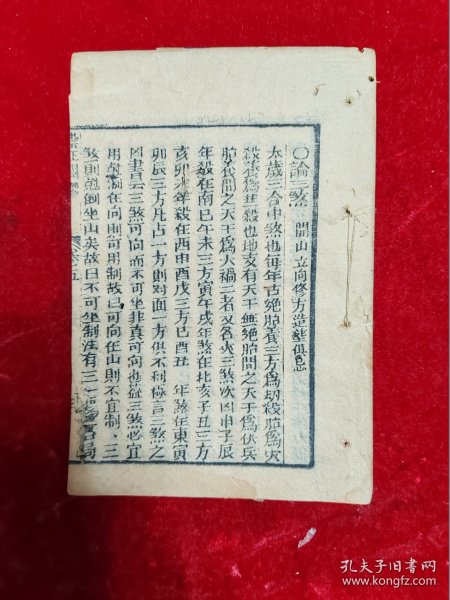 ○論三煞 開山立向修方造塟俱忌
太歲三合中煞也每年占絶胎養三方爲刼殺胎爲灾
殺養爲歲殺也地支有天干無絶胎間之天干爲伏兵
胎養間之天干爲大禍二者又名夾三煞次凶申子辰
年殺在南巳午未三方寅午戌年煞在北亥子丑三方
亥卯未年殺在西申酉戌三方巳酉丑 年煞在東寅
卯辰三方凡占一方則對面一方俱不利極言三煞之
凶書云三煞可向而不可坐非真可向也蓋三煞必宜
用制在向則可用制故曰可向在山則不宜制、三
煞則尅倒坐山矣故曰不可坐制法有三
五
孔夫子旧书网
www.kongfz.com